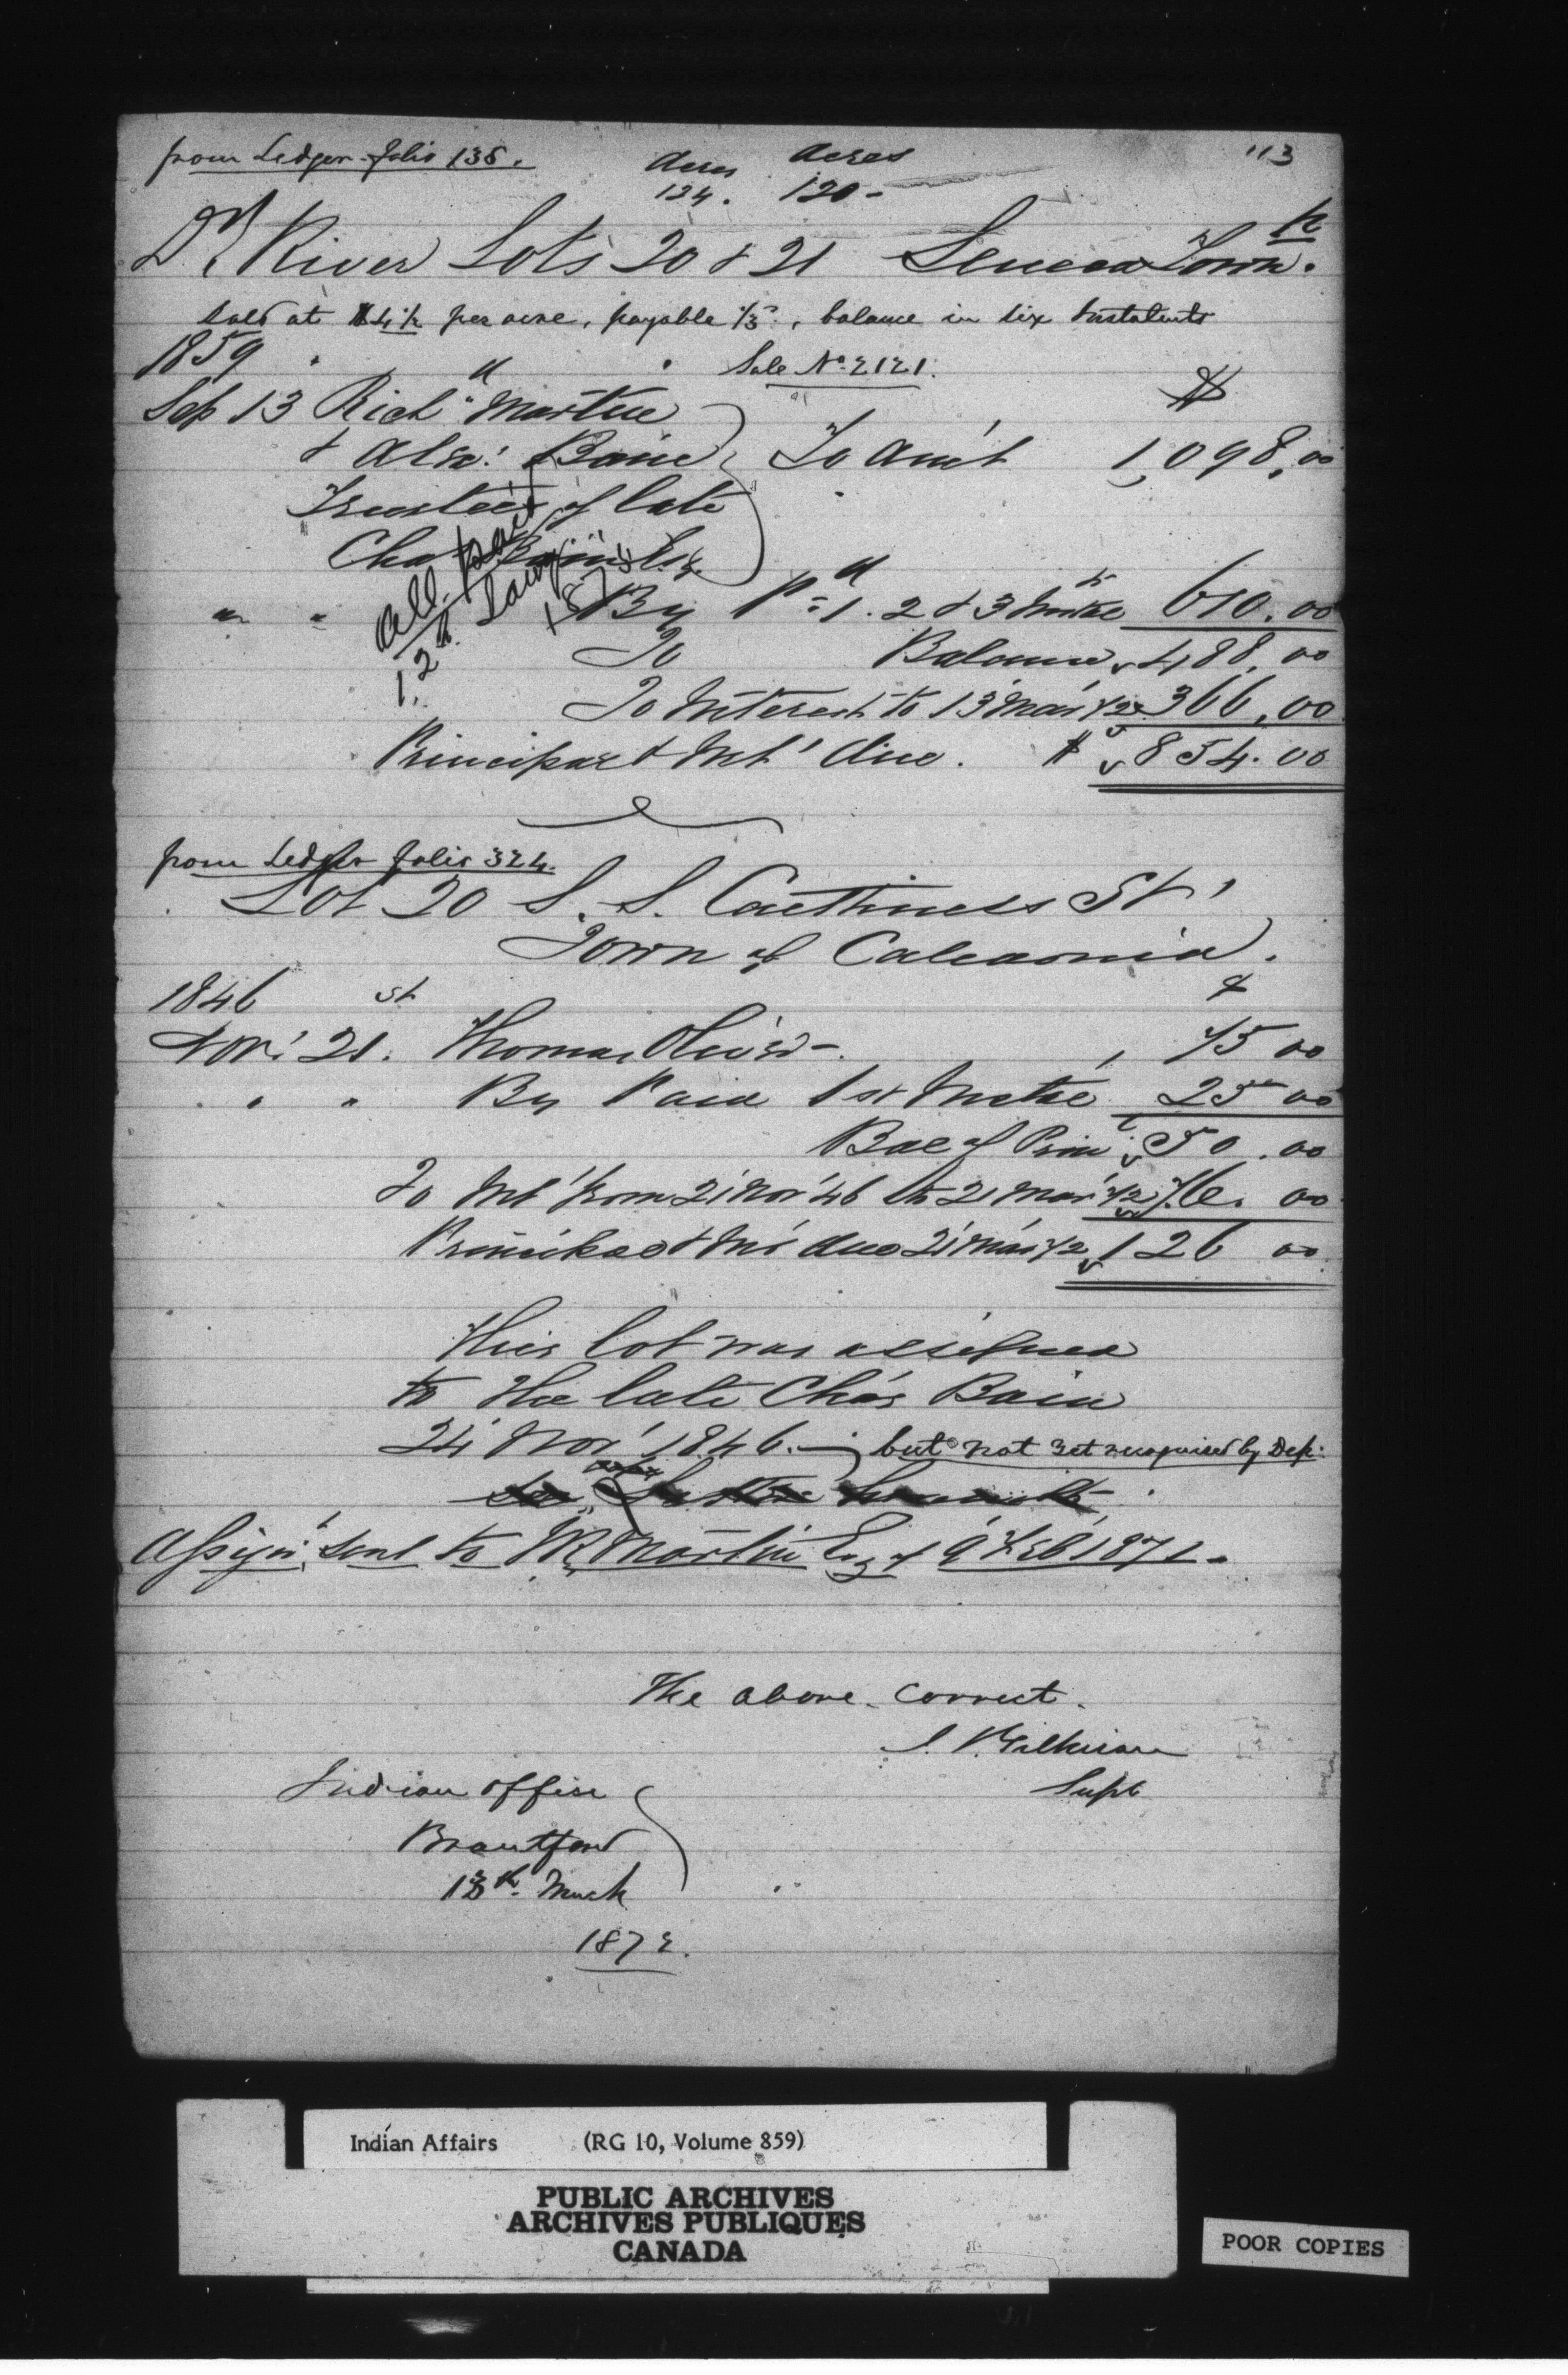 from Ledger folio 136.
113
Acres Acres
124. 120-
Dr River Lots 20 & 21 Seneca Town.p
Sold at $4½ per acre, payable 1/3, balance in six Instalments
1859 " " Sale No. 2121.
$
Sep 13 Richd Martin
& Alexr Bain To Am't 1,098.00
Trustees of late
Chas Bain Esq.
All paid
12th Sany 1875
" " By Pd 1. 2 & 3 Instte 610.00
To Balance 488.00
To Interest to 13 Mar '72 366.00
Principal & Int' due. $ 854.00
from Ledger folio 324.
Lot 20 S. S. Caithness St'
Town of Caledonia.
1846
$
Nov' 21st Thomas Oliver -. 75 00
" " By Paid 1st Instte 25 00
Bal of Prin 50.00
To Int' from 21 Nov '46 to 21 Mar '72 76.00
Principal & Int due 21 Mar '72 126 00
This lot was assigned
to the late Chas Bain
24 Nov' 1846. - but not yet recognised by Dep:
Assign't sent to R. Martin Esq of 9 Feb' 1871.
The above correct.
J. T. Gilkison
Supt
Indian Office
Brantford
13th March
1872.
Indian Affairs (RG 10, Volume 859)
PUBLIC ARCHIVES
ARCHIVES PUBLIQUES
CANADA
POOR COPIES